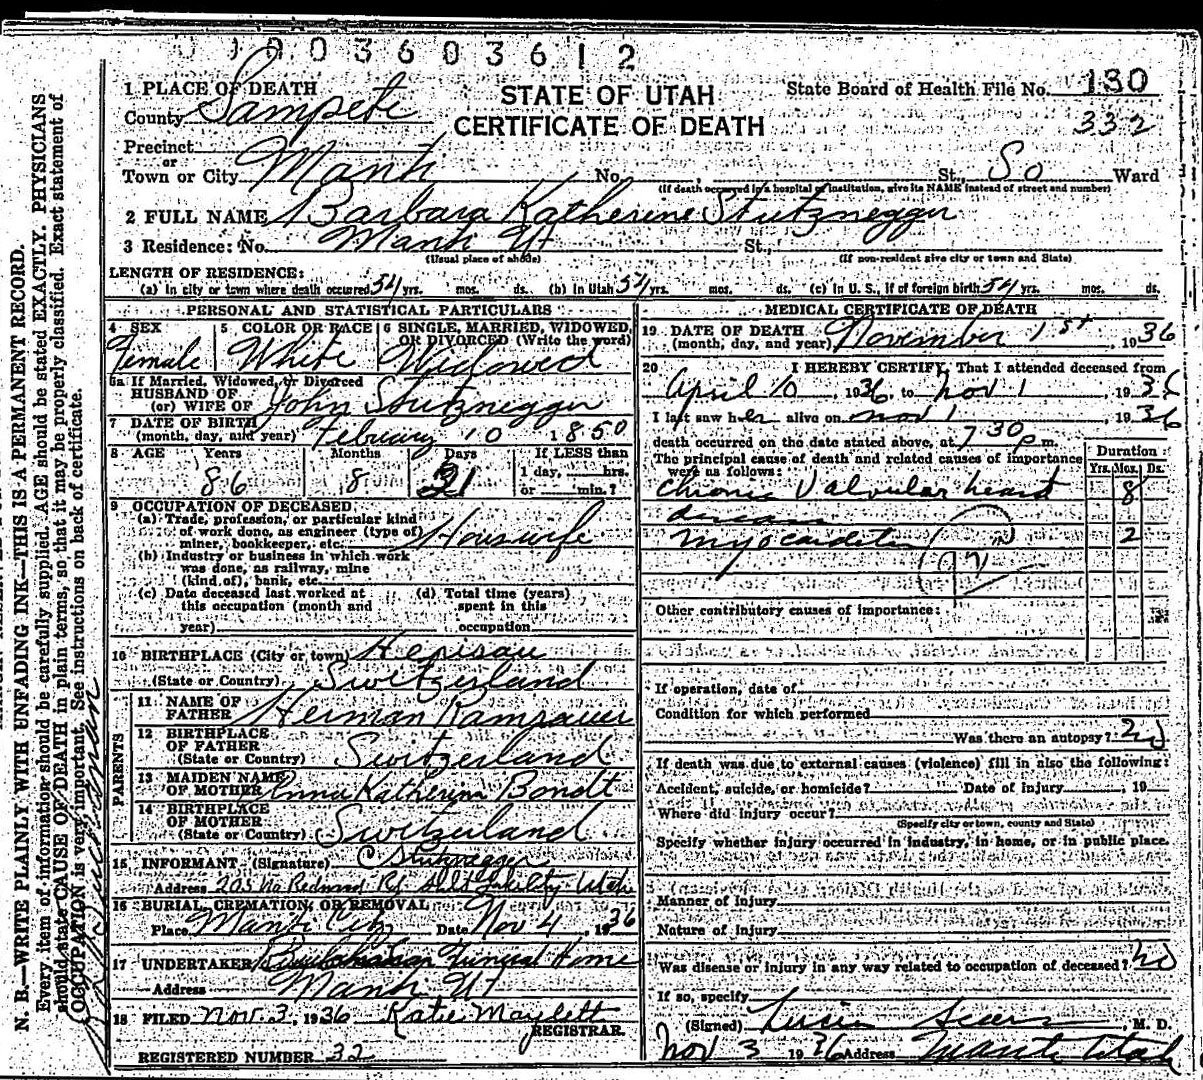 0 0 0 3 6 0 3 6 1 2
1 PLACE OF DEATH
STATE OF UTAH
CERTIFICATE OF DEATH
State Board of Health File No. 130
332
County Sampete
Precinct
or
Town or City Manti No. , St., So Ward
(If death occurred in a hospital or institution, give its NAME instead of street and number)
2 FULL NAME Barbara Katherine Stutznegger
3 Residence: No. Manti Ut St.,
(Usual place of abode) (If non-resident give city or town and State)
LENGTH OF RESIDENCE:
(a) In city or town where death occurred 54 yrs. mos. ds. (b) In Utah 54 yrs. mos. ds. (c) In U. S., if of foreign birth 54 yrs. mos. ds.
PERSONAL AND STATISTICAL PARTICULARS
4 SEX Female
5 COLOR OR RACE White
6 SINGLE, MARRIED, WIDOWED, OR DIVORCED (Write the word) Widowed
6a If Married, Widowed, or Divorced
HUSBAND OF
(or) WIFE OF John Stutznegger
7 DATE OF BIRTH
(month, day, and year) February 10 1850
8 AGE Years Months Days If LESS than
1 day, hrs.
86 8 21 or min.?
9 OCCUPATION OF DECEASED
(a) Trade, profession, or particular kind
of work done, as engineer (type of)
miner, bookkeeper, etc. Housewife
(b) Industry or business in which work
was done, as railway, mine
(kind of), bank, etc.
(c) Date deceased last worked at
this occupation (month and
year)
(d) Total time (years)
spent in this
occupation
10 BIRTHPLACE (City or town) Herisau
(State or Country) Switzerland
PARENTS
11 NAME OF
FATHER Herman Ramsauer
12 BIRTHPLACE
OF FATHER
(State or Country) Switzerland
13 MAIDEN NAME
OF MOTHER Anna Katherin Bondt
14 BIRTHPLACE
OF MOTHER
(State or Country) Switzerland
15 INFORMANT (Signature) C Stutznegger
Address 203 No Redwood Rd Salt Lake City Utah
16 BURIAL, CREMATION, OR REMOVAL
Place Manti City Date Nov 4, 1936
17 UNDERTAKER Funeral Home
Address Manti Ut
18 FILED Nov. 3, 1936 Katie Maylett
REGISTRAR.
REGISTERED NUMBER 32
MEDICAL CERTIFICATE OF DEATH
19 DATE OF DEATH
(month, day, and year) November 1st, 1936
20 I HEREBY CERTIFY, That I attended deceased from
April 10, 1936, to Nov 1, 1936
I last saw her alive on Nov 1, 1936
death occurred on the date stated above, at 7 30 p.m.
The principal cause of death and related causes of importance
were as follows:
Duration
Yrs. Mos. Ds.
Chronic Valvular heart 8
disease
Myocarditis 2
92
Other contributory causes of importance:
If operation, date of
Condition for which performed
Was there an autopsy? No
If death was due to external causes (violence) fill in also the following:
Accident, suicide, or homicide? Date of injury , 19
Where did injury occur?
(Specify city or town, county and State)
Specify whether injury occurred in industry, in home, or in public place.
Manner of Injury
Nature of Injury
Was disease or injury in any way related to occupation of deceased? No
If so, specify
(Signed) Lucien Sears, M. D.
Nov 3 1936 Address Manti Utah
N. B.—WRITE PLAINLY WITH UNFADING INK—THIS IS A PERMANENT RECORD.
Every item of information should be carefully supplied. AGE should be stated EXACTLY. PHYSICIANS
should state CAUSE OF DEATH in plain terms, so that it may be properly classified. Exact statement of
OCCUPATION is very important. See instructions on back of certificate.